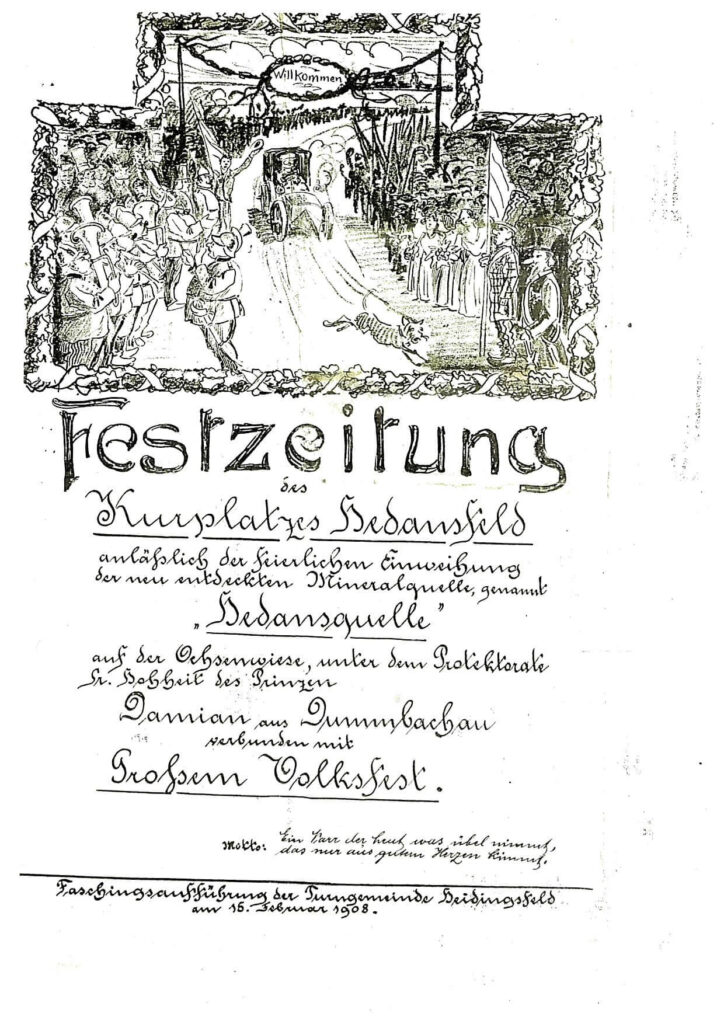 Willkommen
Festzeitung
des
Kurplatzes Hedansfeld
anläßlich der feierlichen Einweihung
der neu entdeckten Mineralquelle, genannt
„Hedansquelle"
auf der Ochsenwiese, unter dem Protektorate
Sr. Hohheit des Prinzen
Damian aus Dummbachau
verbunden mit
Großem Volksfest.
Motto: Ein Narr der heut was übel nimmt,
das nur aus gutem Herzen kimmt.
Faschingsaufführung der Turngemeinde Heidingsfeld
am 16. Februar 1908.